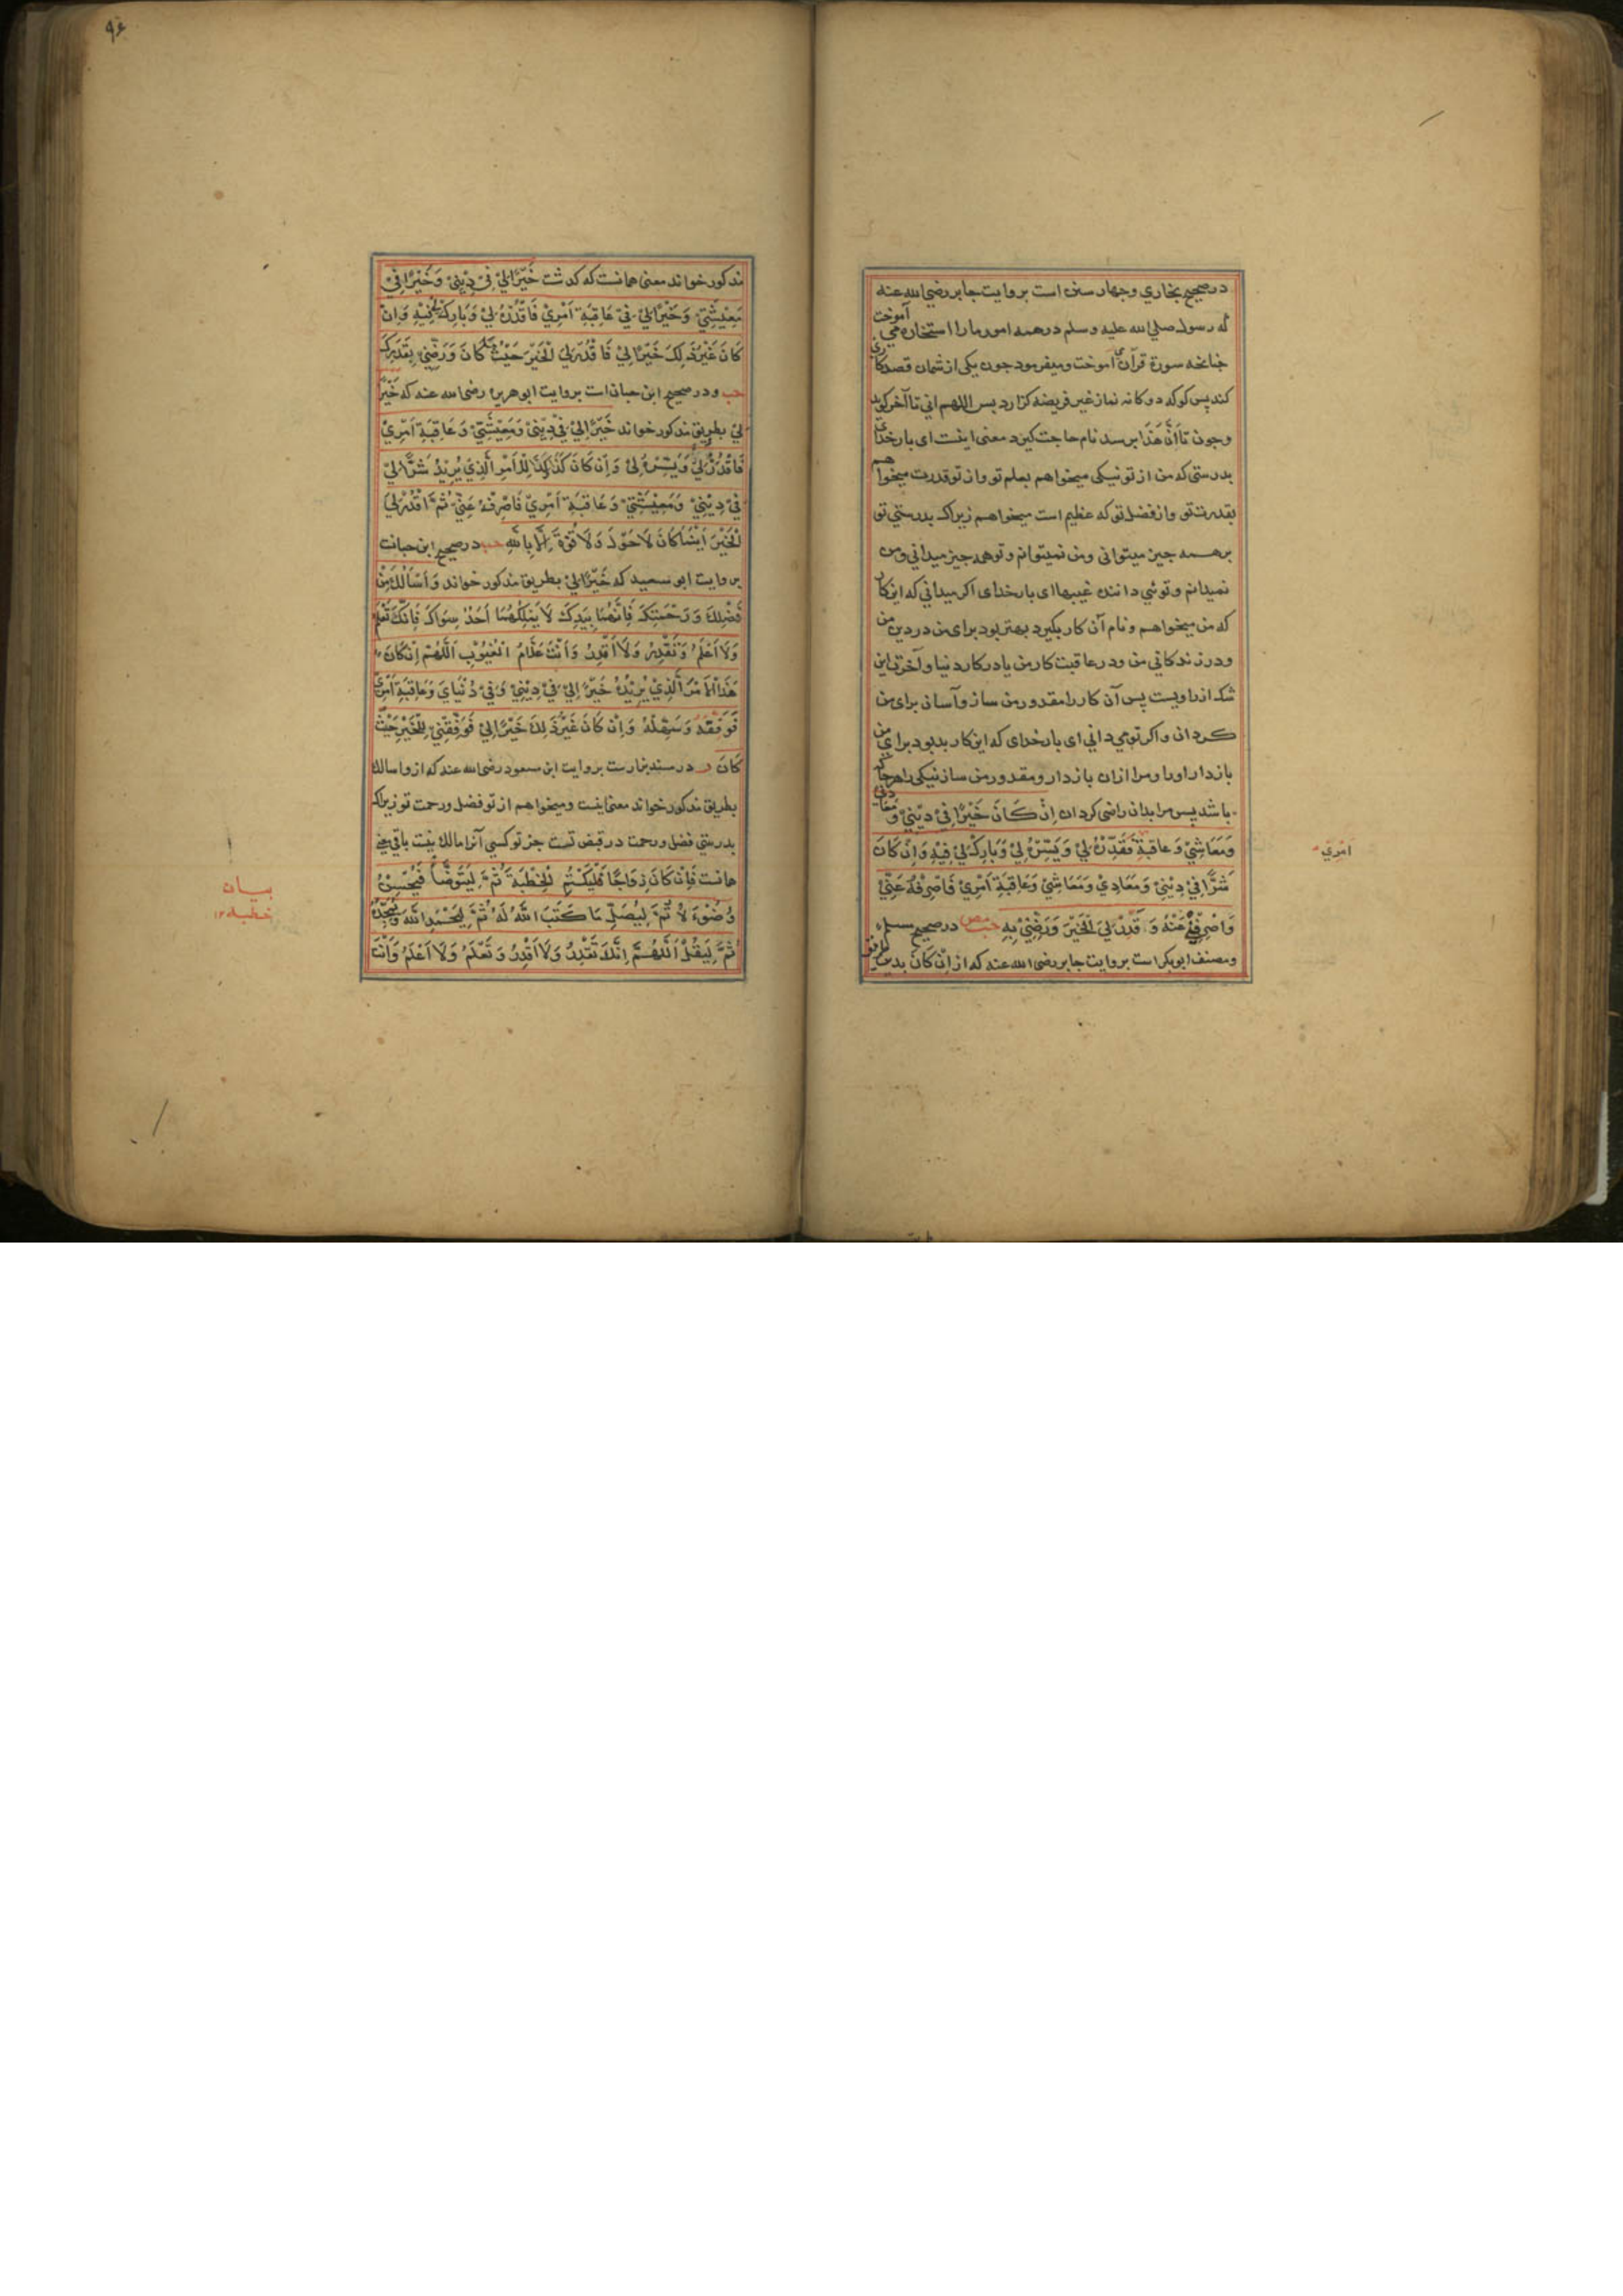 در صحیح بخاري وچهار سنن است بروایت جابر رضي الله عنه
که رسول صلي الله علیه وسلم در همه امور مارا استخاره مي آموخت
چنانچه سورة قرآن مي آموخت ومیفرمود چون یکی از شمایان قصد کاری
کند پس کو که دوکانه نماز غیر فریضه کزارد پس اللهم اني تا آخر کوید
وچون تا اَنَّ هَذَا برسد نام حاجت کیرد معنی اینست ای بارخدای
بدرستی که من از تو نیکی میخواهم بعلم تو واز تو قدرت میخواهم
بقدرت تو واز فضل تو که عظیم است میخواهم زیراکه بدرستي تو
بر همه چیز میتوانی ومن نمیتوانم وتو همه چیز میداني ومن
نمیدانم وتوئي داننده غیبها ای بارخدای اکر میداني که این کار
که من میخواهم ونام آن کار بکیرد بهتر بود برای من در دین من
ودر زندکاني من ودر عاقبت کار من یا در کار دنیا وآخرت این
شک از راویست پس آن کار را مقدور من ساز وآسان برای من
کردان واکر تو مي داني ای بارخدای که این کار بد بود برای من
بازدار اورا ومرا ازان بازدار ومقدور من ساز نیکی را هرجا که
باشد پس مرا بدان راضی کردان اِنْ كَانَ خَيْرًا فِيْ دِيْنِيْ وَمَعَادِيْ
وَمَعَاشِيْ وَعَاقِبَةِ فَقَدِّرْهُ لِيْ وَيَسِّرْهُ لِيْ وَبَارِكْ لِيْ فِيْهِ وَاِنْ كَانَ
امْرِيْ
شَرًّا فِيْ دِيْنِيْ وَمَعَادِيْ وَمَعَاشِيْ وَعَاقِبَةِ اَمْرِيْ فَاصْرِفْهُ عَنِّيْ
وَاصْرِفْنِيْ عَنْهُ وَقَدِّرْ لِيَ الْخَيْرَ وَرَضِّنِيْ بِهِ حب مص در صحیح مسلم
ومصنف ابوبکر است بروایت جابر رضی الله عنه که از اِنْ كَانَ بدین طریق
۹۶
مذکور خواند معنی همانست که کذشت خَيْرًا لِيْ فِيْ دِيْنِيْ وَخَيْرًا فِيْ
مَعِيْشَتِيْ وَخَيْرًا لِيْ فِيْ عَاقِبَةِ اَمْرِيْ فَاقْدُرْهُ لِيْ وَبَارِكْ لِيْ فِيْهِ وَاِنْ
كَانَ غَيْرُ ذَلِكَ خَيْرًا لِيْ فَاقْدُرْ لِيَ الْخَيْرَ حَيْثُ كَانَ وَرَضِّنِيْ بِقَدَرِكَ
حب ودر صحیح ابن حبان است بروایت ابو هریره رضی الله عنه که خَيْرًا
لِيْ بطریق مذکور خواند خَيْرًا لِيْ فِيْ دِيْنِيْ وَمَعِيْشَتِيْ وَعَاقِبَةِ اَمْرِيْ
فَاقْدُرْهُ لِيْ وَيَسِّرْهُ لِيْ وَاِنْ كَانَ كَذَا كَذَا لِلْاَمْرِ الَّذِيْ يُرِيْدُ شَرًّا لِيْ
فِيْ دِيْنِيْ وَمَعِيْشَتِيْ وَعَاقِبَةِ اَمْرِيْ فَاصْرِفْهُ عَنِّيْ ثُمَّ اقْدُرْ لِيَ
الْخَيْرَ اَيْنَمَا كَانَ لَا حَوْلَ وَلَا قُوَّةَ اِلَّا بِاللّٰهِ حب در صحیح ابن حبانست
بروایت ابو سعید که خَيْرًا لِيْ بطریق مذکور خواند وَاَسْاَلُكَ مِنْ
فَضْلِكَ وَرَحْمَتِكَ فَاِنَّهُمَا بِيَدِكَ لَا يَمْلِكُهُمَا اَحَدٌ سِوَاكَ فَاِنَّكَ تَعْلَمُ
وَلَا اَعْلَمُ وَتَقْدِرُ وَلَا اَقْدِرُ وَاَنْتَ عَلَّامُ الْغُيُوْبِ اَللّٰهُمَّ اِنْ كَانَ
هَذَا الْاَمْرُ الَّذِيْ يُرِيْدُهُ خَيْرًا لِيْ فِيْ دِيْنِيْ وَفِيْ دُنْيَايَ وَعَاقِبَةِ اَمْرِيْ
فَوَفِّقْهُ وَسَهِّلْهُ وَاِنْ كَانَ غَيْرُ ذَلِكَ خَيْرًا لِيْ فَوَفِّقْنِيْ لِلْخَيْرِ حَيْثُ
كَانَ ر در مسند بزارست بروایت ابن مسعود رضی الله عنه که از واسالك
بطریق مذکور خواند معنی اینست ومیخواهم از تو فضل ورحمت تو زیراکه
بدرستي فضل ورحمت در قبض تست جز تو کسي آنرا مالك نیست باقي معنی
همانست فَاِنْ كَانَ زِوَاجًا فَلْيَكْتُمِ الْخِطْبَةَ ثُمَّ لِيَتَوَضَّأْ فَيُحْسِنُ
بیان
خطبه ۱۲
وُضُوْءَهُ ثُمَّ لِيُصَلِّ مَا كَتَبَ اللّٰهُ لَهُ ثُمَّ لِيَحْمَدِ اللّٰهَ وَيُمَجِّدُهُ
ثُمَّ لِيَقُلْ اَللّٰهُمَّ اِنَّكَ تَقْدِرُ وَلَا اَقْدِرُ وَتَعْلَمُ وَلَا اَعْلَمُ وَاَنْتَ